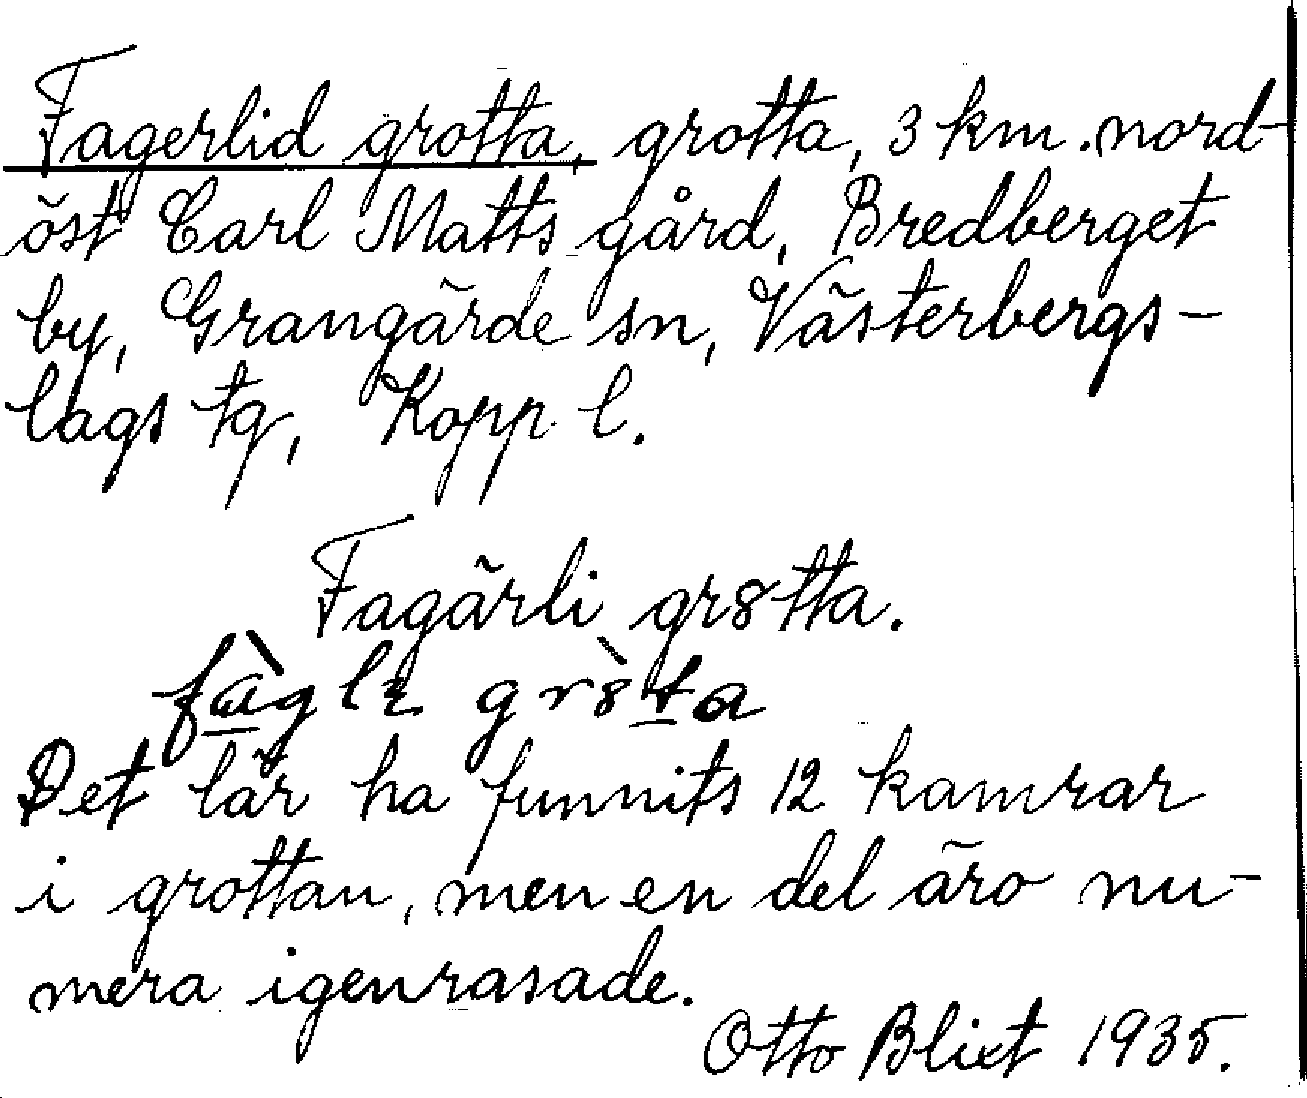 Fagerlid grotta, grotta, 3 km. nord-
öst Carl Matts gård, Bredberget
by, Grangärde sn, Västerbergs-
lags tg, Kopp. l.
Fagärli gr8tta.
fàglɪ gr8̀ta
Det lär ha funnits 12 kamrar
i grottan, men en del äro nu-
mera igenrasade.
Otto Blixt 1935.